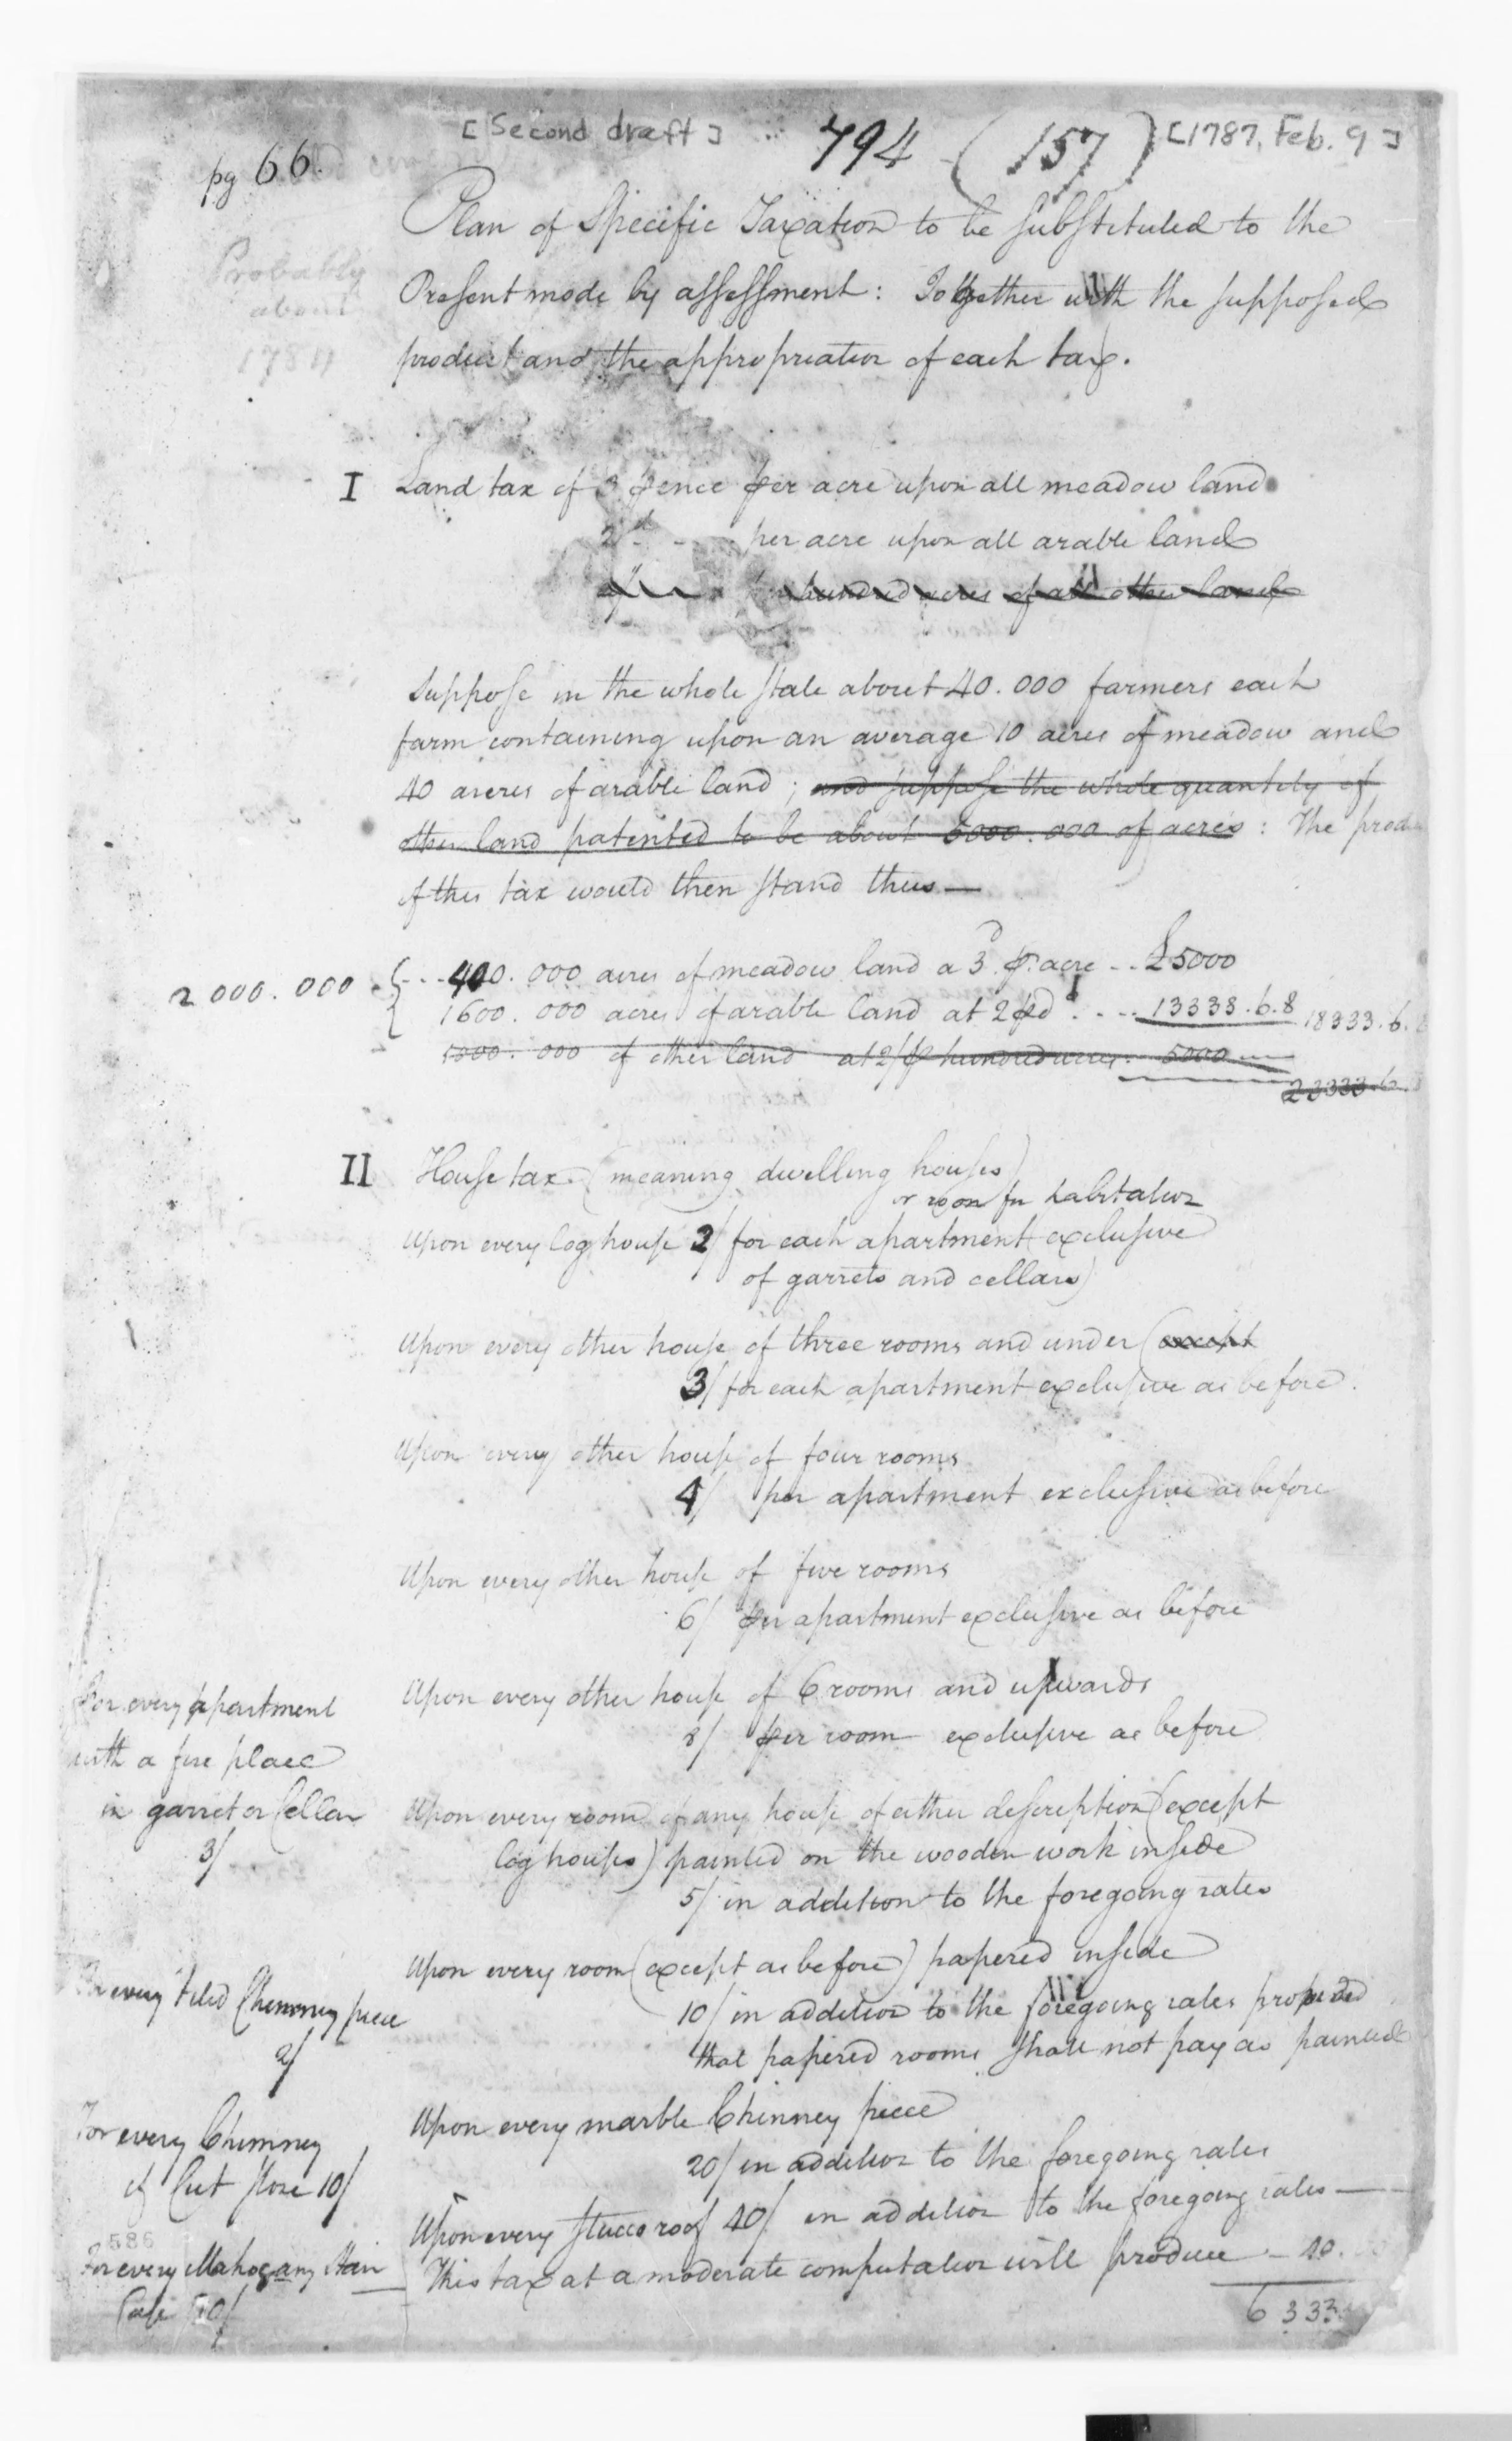 [Second draft] 794 (157) [1787, Feb. 9]
pg 66.
Probably
about
Plan of Specific Taxation to be substituted to the
Present mode by assessment: Together with the supposed
product and the appropriation of each tax.
I Land tax of 3 pence per acre upon all meadow land
2d per acre upon all arable land
hundred acres of all other land
Suppose in the whole state about 40.000 farmers each
farm containing upon an average 10 acres of meadow and
40 acres of arable land; and suppose the whole quantity of
other land patented to be about 5000.000 of acres: The produ
of this tax would then stand thus—
2 000.000 400.000 acres of meadow land a 3d. ⅌ acre - - £5000
1600.000 acres of arable land at 2d - - 13333.6.8 18333.6.
5000.000 of other land at 2/ ⅌ hundred acres - 5000
23333.6.
II House tax (meaning dwelling houses)
or room for habitation
Upon every log house 2/ for each apartment (exclusive
of garrets and cellars)
Upon every other house of three rooms and under (except
3/ for each apartment exclusive as before.
Upon every other house of four rooms
4/ per apartment exclusive as before
Upon every other house of five rooms
6/ per apartment exclusive as before
Upon every other house of 6 rooms and upwards
8/ per room exclusive as before
For every apartment
with a fire place
in garret or Cellar
3/
Upon every room of any house of either description (except
log houses) painted on the wooden work inside
5/ in addition to the foregoing rates
Upon every room (except as before) papered inside
10/ in addition to the foregoing rates provided
that papered rooms shall not pay as painted
For every tiled Chimney piece
2/
Upon every marble Chinney piece
20/ in addition to the foregoing rates
For every Chimney
of Cut stone 10/
Upon every stucco roof 40/ in addition to the foregoing rates —
586
For every Mahogany Stair
Case 10/
This tax at a moderate computation will produce - 40.
6333